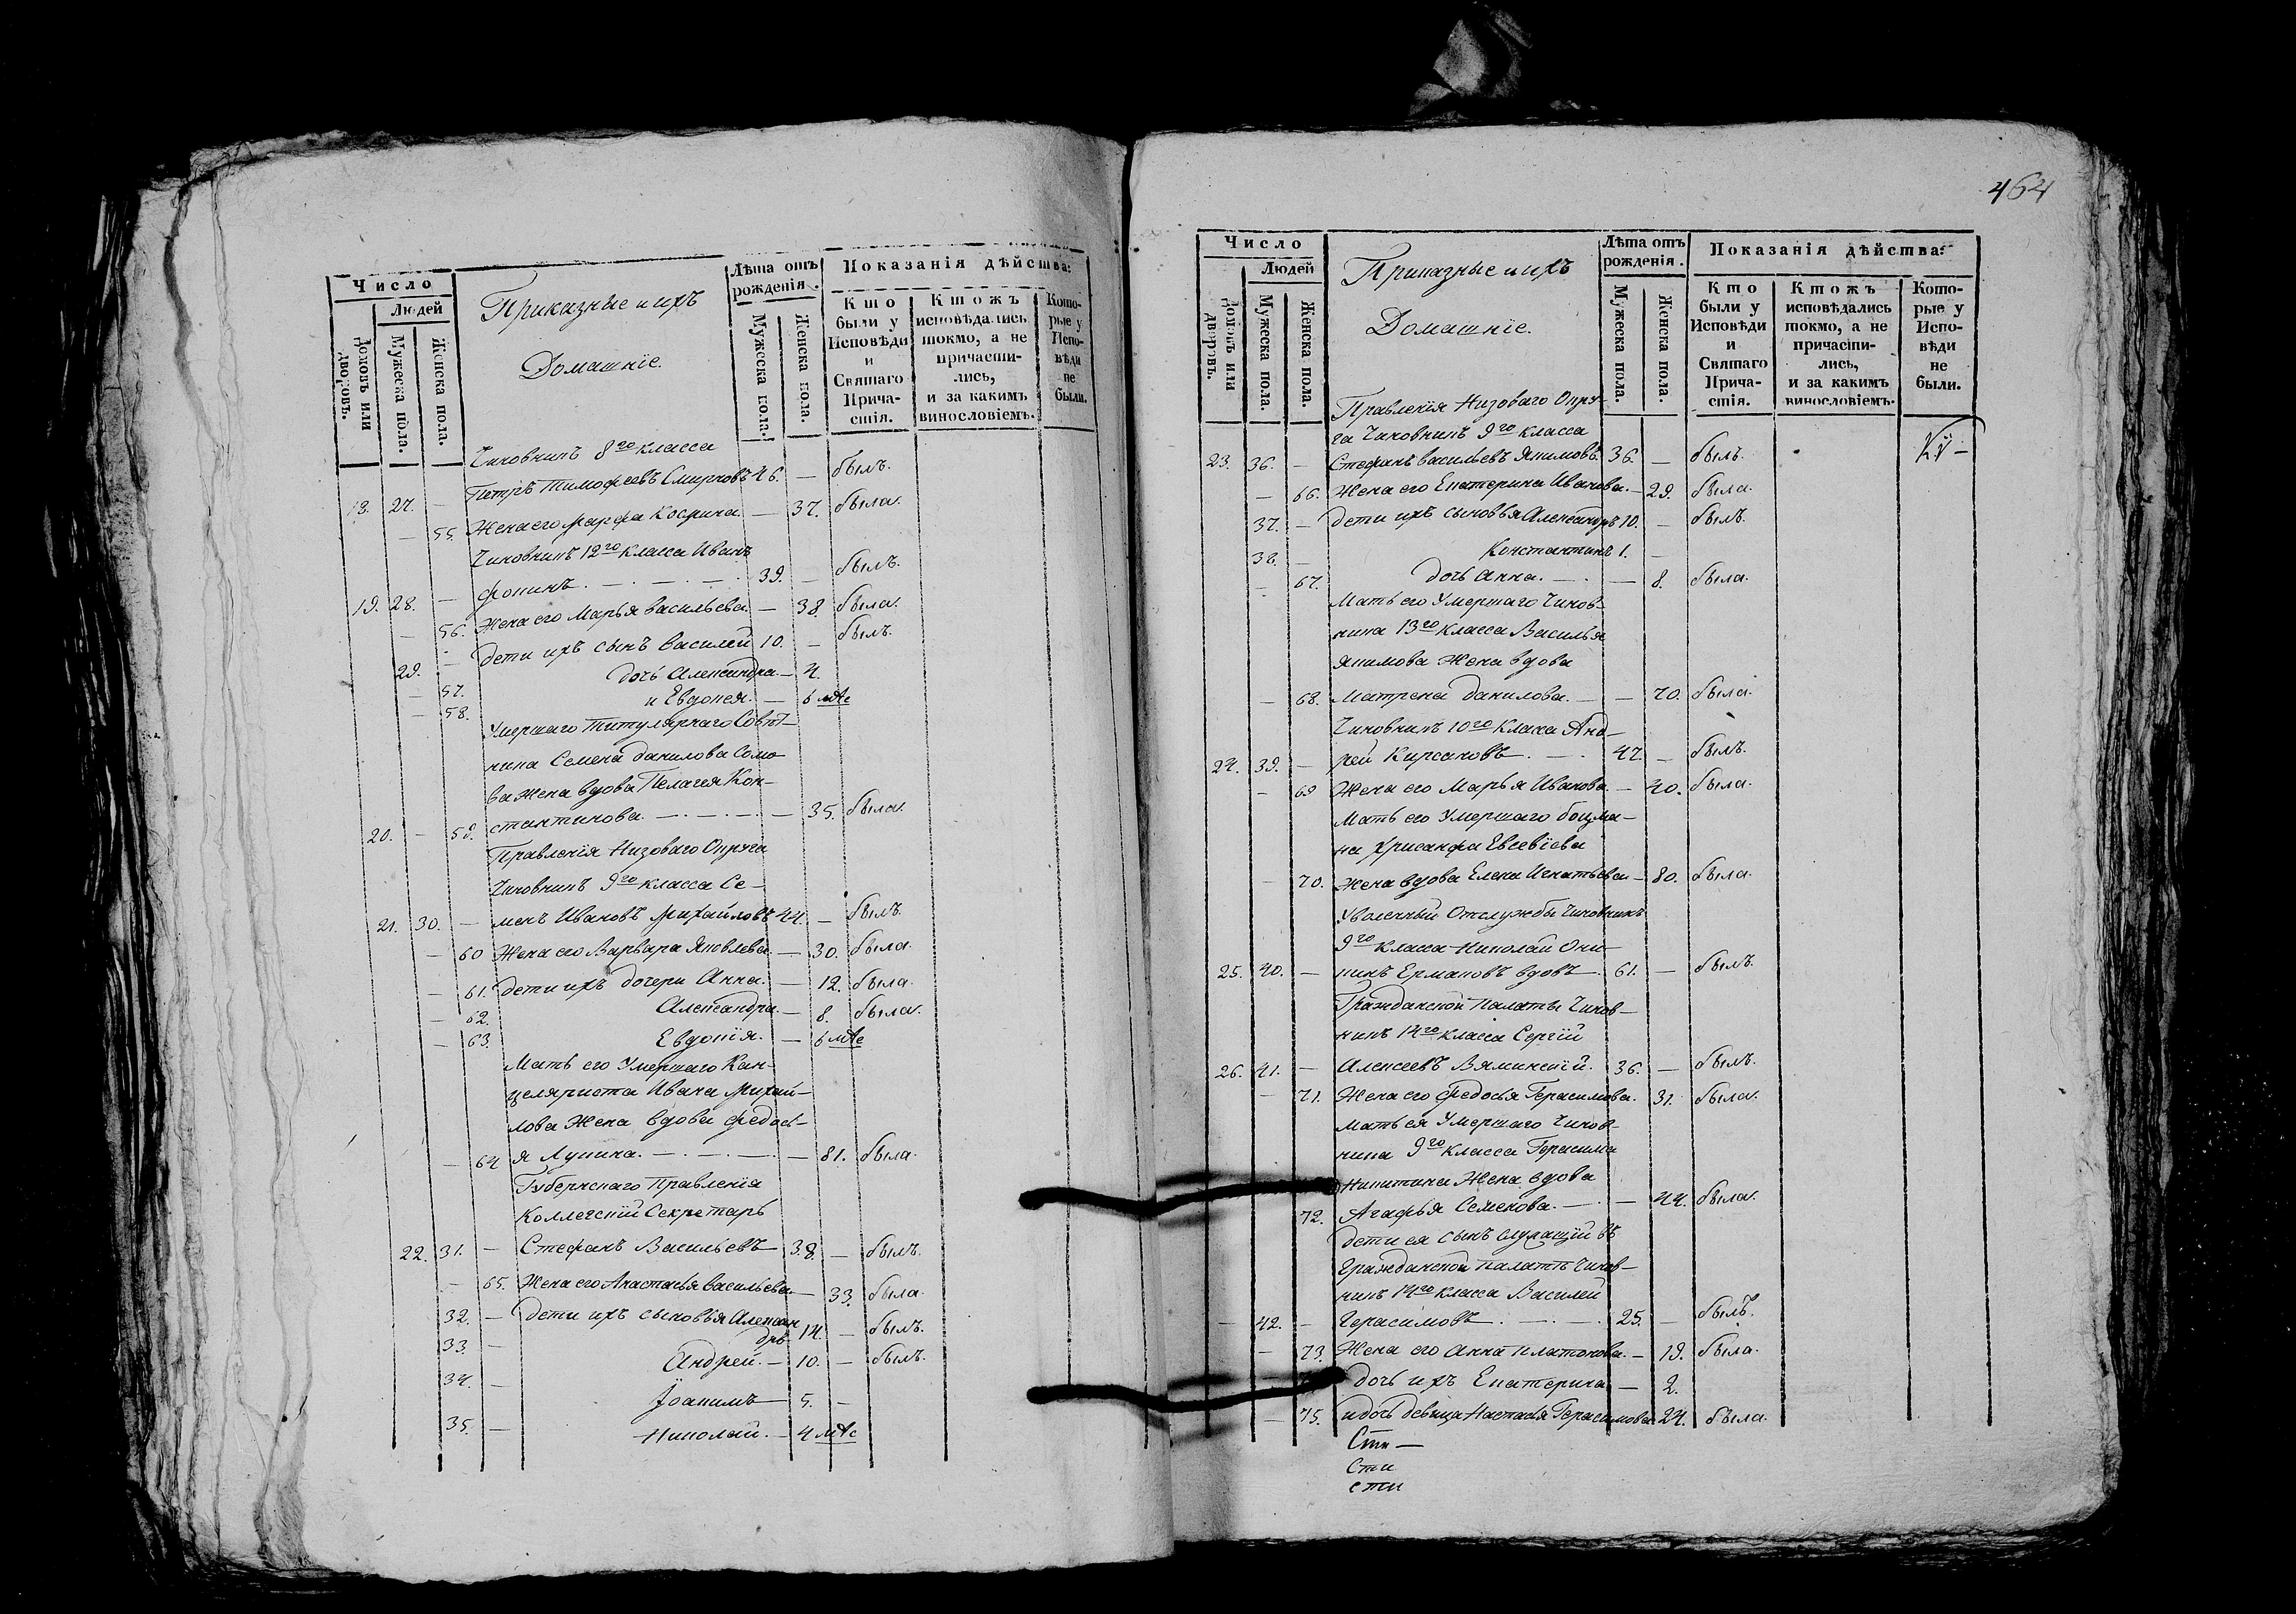 Число
Людей
Домовъ или дворовъ.
Мужеска пола.
Женска пола.
Приказные и ихъ
Домашніе.
Лѣта отъ рожденія.
Мужеска пола.
Женска пола.
Показанія дѣйства:
Кто были у Исповѣди и Святаго Причастія.
Ктожъ исповѣдались токмо, а не причастились, и за какимъ винословіемъ.
Которые у Исповѣди не были.
Чиновникъ 8го класса
18. 27. — Петръ Тимофеевъ Смирновъ 46. — былъ.
— 55. Жена его Марфа Космина. — 37. была.
Чиновникъ 12го класса Иванъ
19. 28. — Фокинъ. — 39. — былъ.
— 56. Жена его Марья Васильева. — 38. была.
29. — дети ихъ сынъ Василей 10. — былъ.
— 57. дочь Александра — 4.
— 58. и Евдокея. — 6 мѣс
Умершаго Титулярнаго Совѣт—
ника Семена Данилова Сомо
ва Жена вдова Пелагея Кон—
20. — 59. стантинова. — 35. была.
Правленія Низоваго Округа
Чиновникъ 9го класса Се—
21. 30. — менъ Ивановъ Михайловъ 44. — былъ.
— 60 Жена его Варвара Яковлева — 30. была.
— 61. дети ихъ дочери Анна. — 12. была.
— 62. Александра. — 8. была.
— 63. Евдокія. — 6 мѣс
Мать его Умершаго Кан—
целяриста Ивана Михай—
лова Жена вдова Федось—
— 64 я Лукина. — 81. была.
Губернскаго Правленія
Коллегскій Секретарь
22. 31. — Стефанъ Васильевъ 38. — былъ.
— 65. Жена его Анастасья Васильева — 33. была.
32. — дети ихъ сыновья Алексан
дръ 14. — былъ.
33. — Андрей. — 10. — былъ.
34. — Іоакимъ 5. —
35. — Николай. — 4 мѣс
464
Число
Людей
Домовъ или дворовъ.
Мужеска пола.
Женска пола.
Приказные и ихъ
Домашніе.
Лѣта отъ рожденія.
Мужеска пола.
Женска пола.
Показанія дѣйства:
Кто были у Исповѣди и Святаго Причастія.
Ктожъ исповѣдались токмо, а не причастились, и за какимъ винословіемъ.
Которые у Исповѣди не были.
Правленія Низоваго Окру—
га Чиновникъ 9го класса
23. 36. — Стефанъ Васильевъ Якимовъ. 36. — былъ.
— 66. Жена его Екатерина Иванова. — 29. была.
37. — дети ихъ сыновья Александръ 10. — былъ.
38. — Константинъ 1. —
— 67. дочь Анна. — 8. была.
Мать его Умершаго Чинов—
ника 13го класса Василья
Якимова Жена вдова
— 68. Матрена Данилова. — 70. была.
Чиновникъ 10го класса Анд—
24. 39. — рей Кирсановъ. — 47. — былъ.
— 69 Жена его Марья Иванова — 40. была.
Мать его Умершаго боцма—
на Хрисанфа Евсевіева
— 70. Жена вдова Елена Игнатьева — 80. была.
Уволенный Отслужбы Чиновникъ
9го класса Николай Они—
25. 40. — кинъ Ермаковъ вдовъ 61. — былъ.
Гражданской палаты Чинов—
никъ 14го класса Сергій
26. 41. — Алексеевъ Вяминскій. 36. — былъ.
— 71. Жена его Федосья Герасимова. 31. была.
Мать ея Умершаго Чинов—
ника 9го класса Герасима
Никитина Жена вдова
72. Агафья Семенова. — 44. была.
дети ея сынъ служащій въ
гражданской палатѣ чинов—
никъ 14го класса Василей
— 42. — Герасимовъ. — 25. — былъ.
— 73. Жена его Анна Платонова. — 19. была.
дочь ихъ Екатерина — 2.
— 75. и дочь девица Настасья Герасимова 24. была.
Сти —
Сти
сти